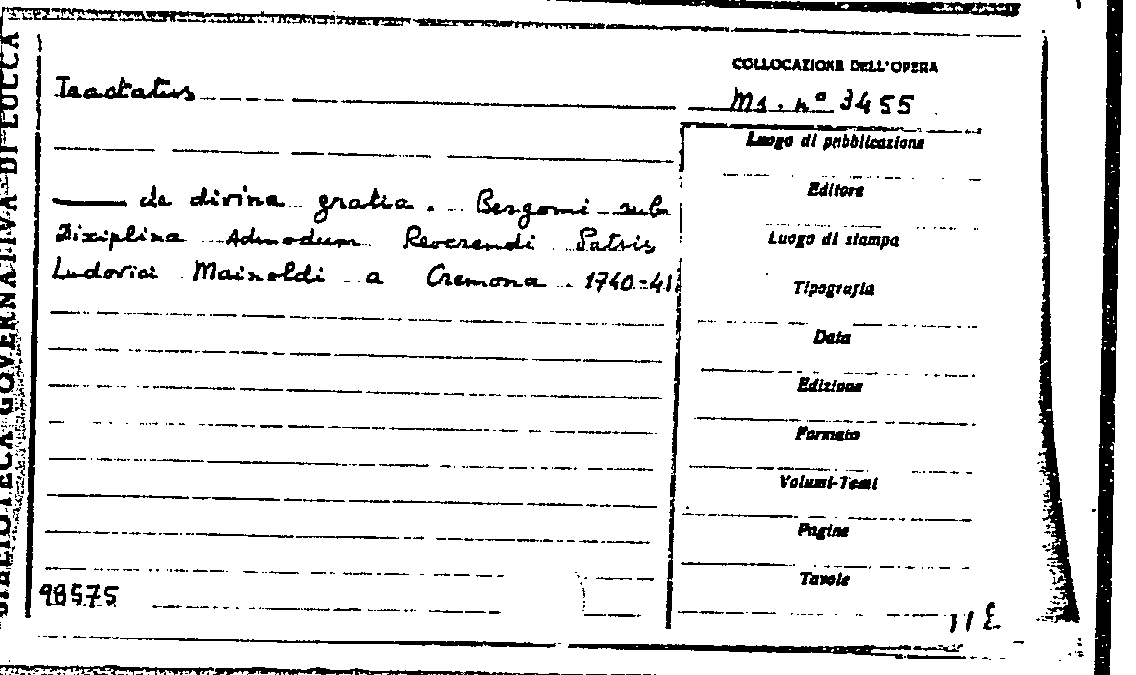 BIBLIOTECA GOVERNATIVA DI LUCCA
COLLOCAZIONE DELL'OPERA
Tractatus
Ms. nº 3455
Luogo di pubblicazione
de divina gratia. Bergomi sub
Editore
Disciplina Admodum Reverendi Patris
Luogo di stampa
Ludovici Mainoldi a Cremona. 1740-41.
Tipografia
Data
Edizione
Formato
Volumi-Tomi
Pagine
Tavole
98575